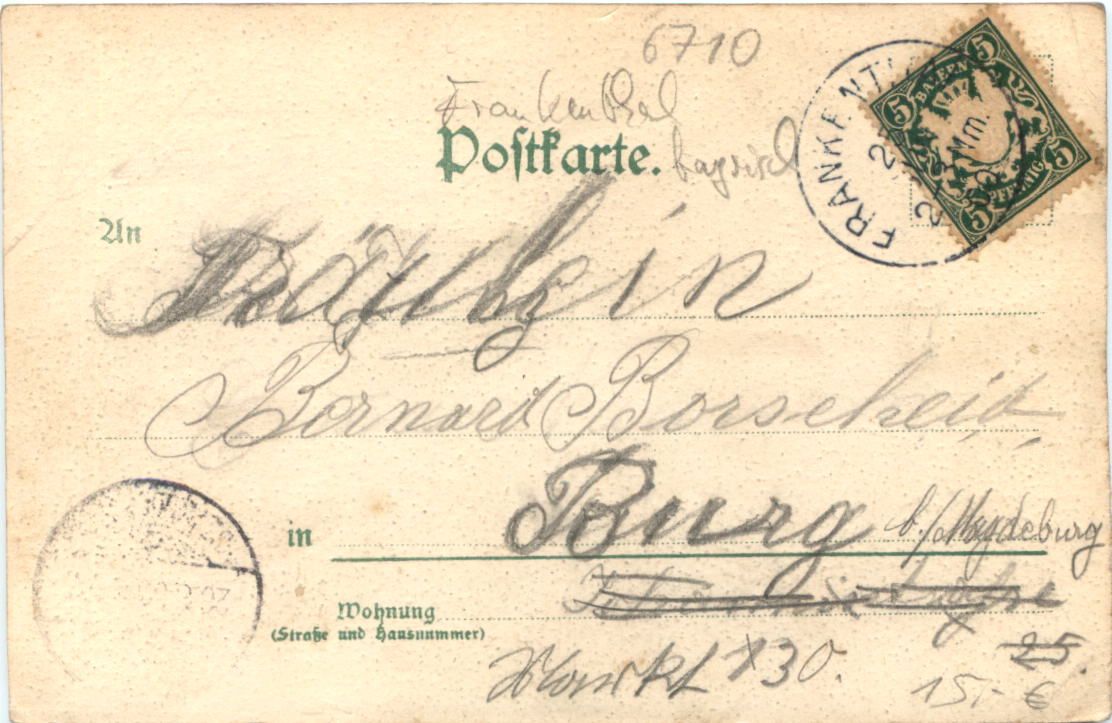 6710
Frankenthal
bayrisch
Postkarte.
FRANKENTH
BAYERN
5 5
5 5
PFENNIG
An
Fräulein
Bernard Borscheid,
in Burg b./Magdeburg
Wohnung
(Straße und Hausnummer)
25.
Markt 30.
15,- €